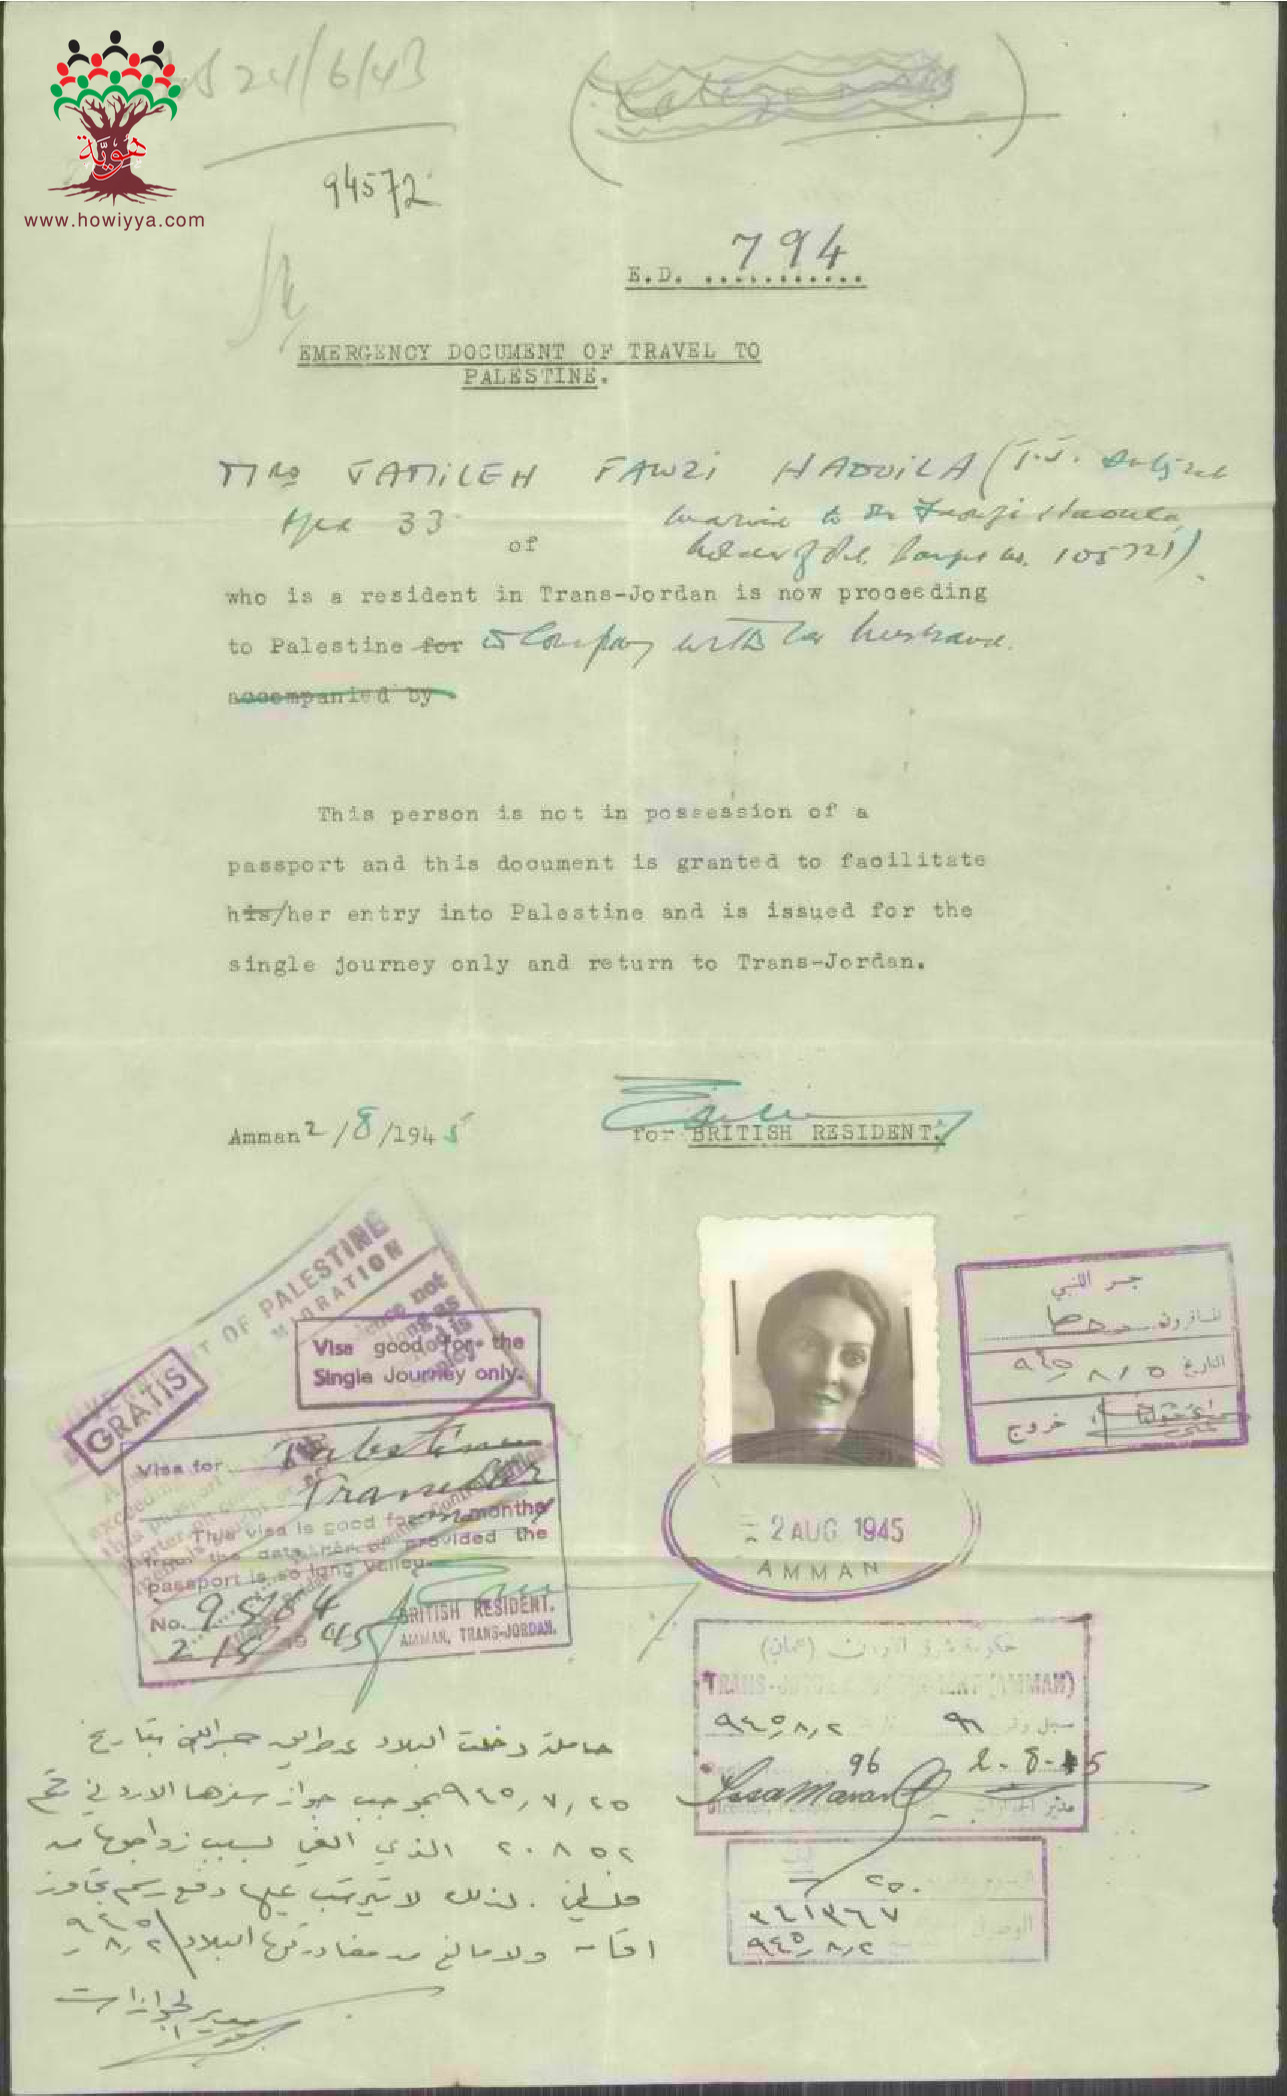 24/6/43
هويّة
www.howiyya.com
94572
E.D. ...........
794
EMERGENCY DOCUMENT OF TRAVEL TO
PALESTINE.
Mrs JAMILEH FAWZI HADUILA (T.J. Subject
Aged 33
married to Dr Fawzi
of
holder of Pal. No. 105721)
who is a resident in Trans-Jordan is now proceeding
to Palestine for to Company with her husband.
accompanied by
This person is not in possession of a
passport and this document is granted to facilitate
his/her entry into Palestine and is issued for the
single journey only and return to Trans-Jordan.
Amman 2/8/1945
for BRITISH RESIDENT.
OF PALESTINE
MIGRATION
GRATIS
Visa good for the
Single Journey only.
Visa for Palestine
This visa is good for months
from the date hereof provided the
passport is so long valid.
No.
2/8 1945
BRITISH RESIDENT.
AMMAN, TRANS-JORDAN.
جسر اللنبي
التاريخ ٩٤٥/٨/٥
خروج
2 AUG 1945
AMMAN
حكومة شرق الاردن (عمان)
TRANS-JORDAN GOVERNMENT (AMMAN)
٩٤٥/٨/٢
٩٦
96 2-8-45
مدير الجوازات
٢٥٠
٣٤١٣٦٧
٩٤٥/٨/٢
حاملته دخلت البلاد عن طريق جسر اللنبي بتاريخ
٩٤٥/٧/٢٥ بموجب جواز سفرها الاردني رقم
٢٠٨٥٢ الذي الغي بسبب زواجها من
فلسطيني. لذلك لا يترتب عليها دفع رسم تجاوز
اقامة ولا مانع من مغادرتها البلاد ٩٤٥/٨/٢
مدير الجوازات